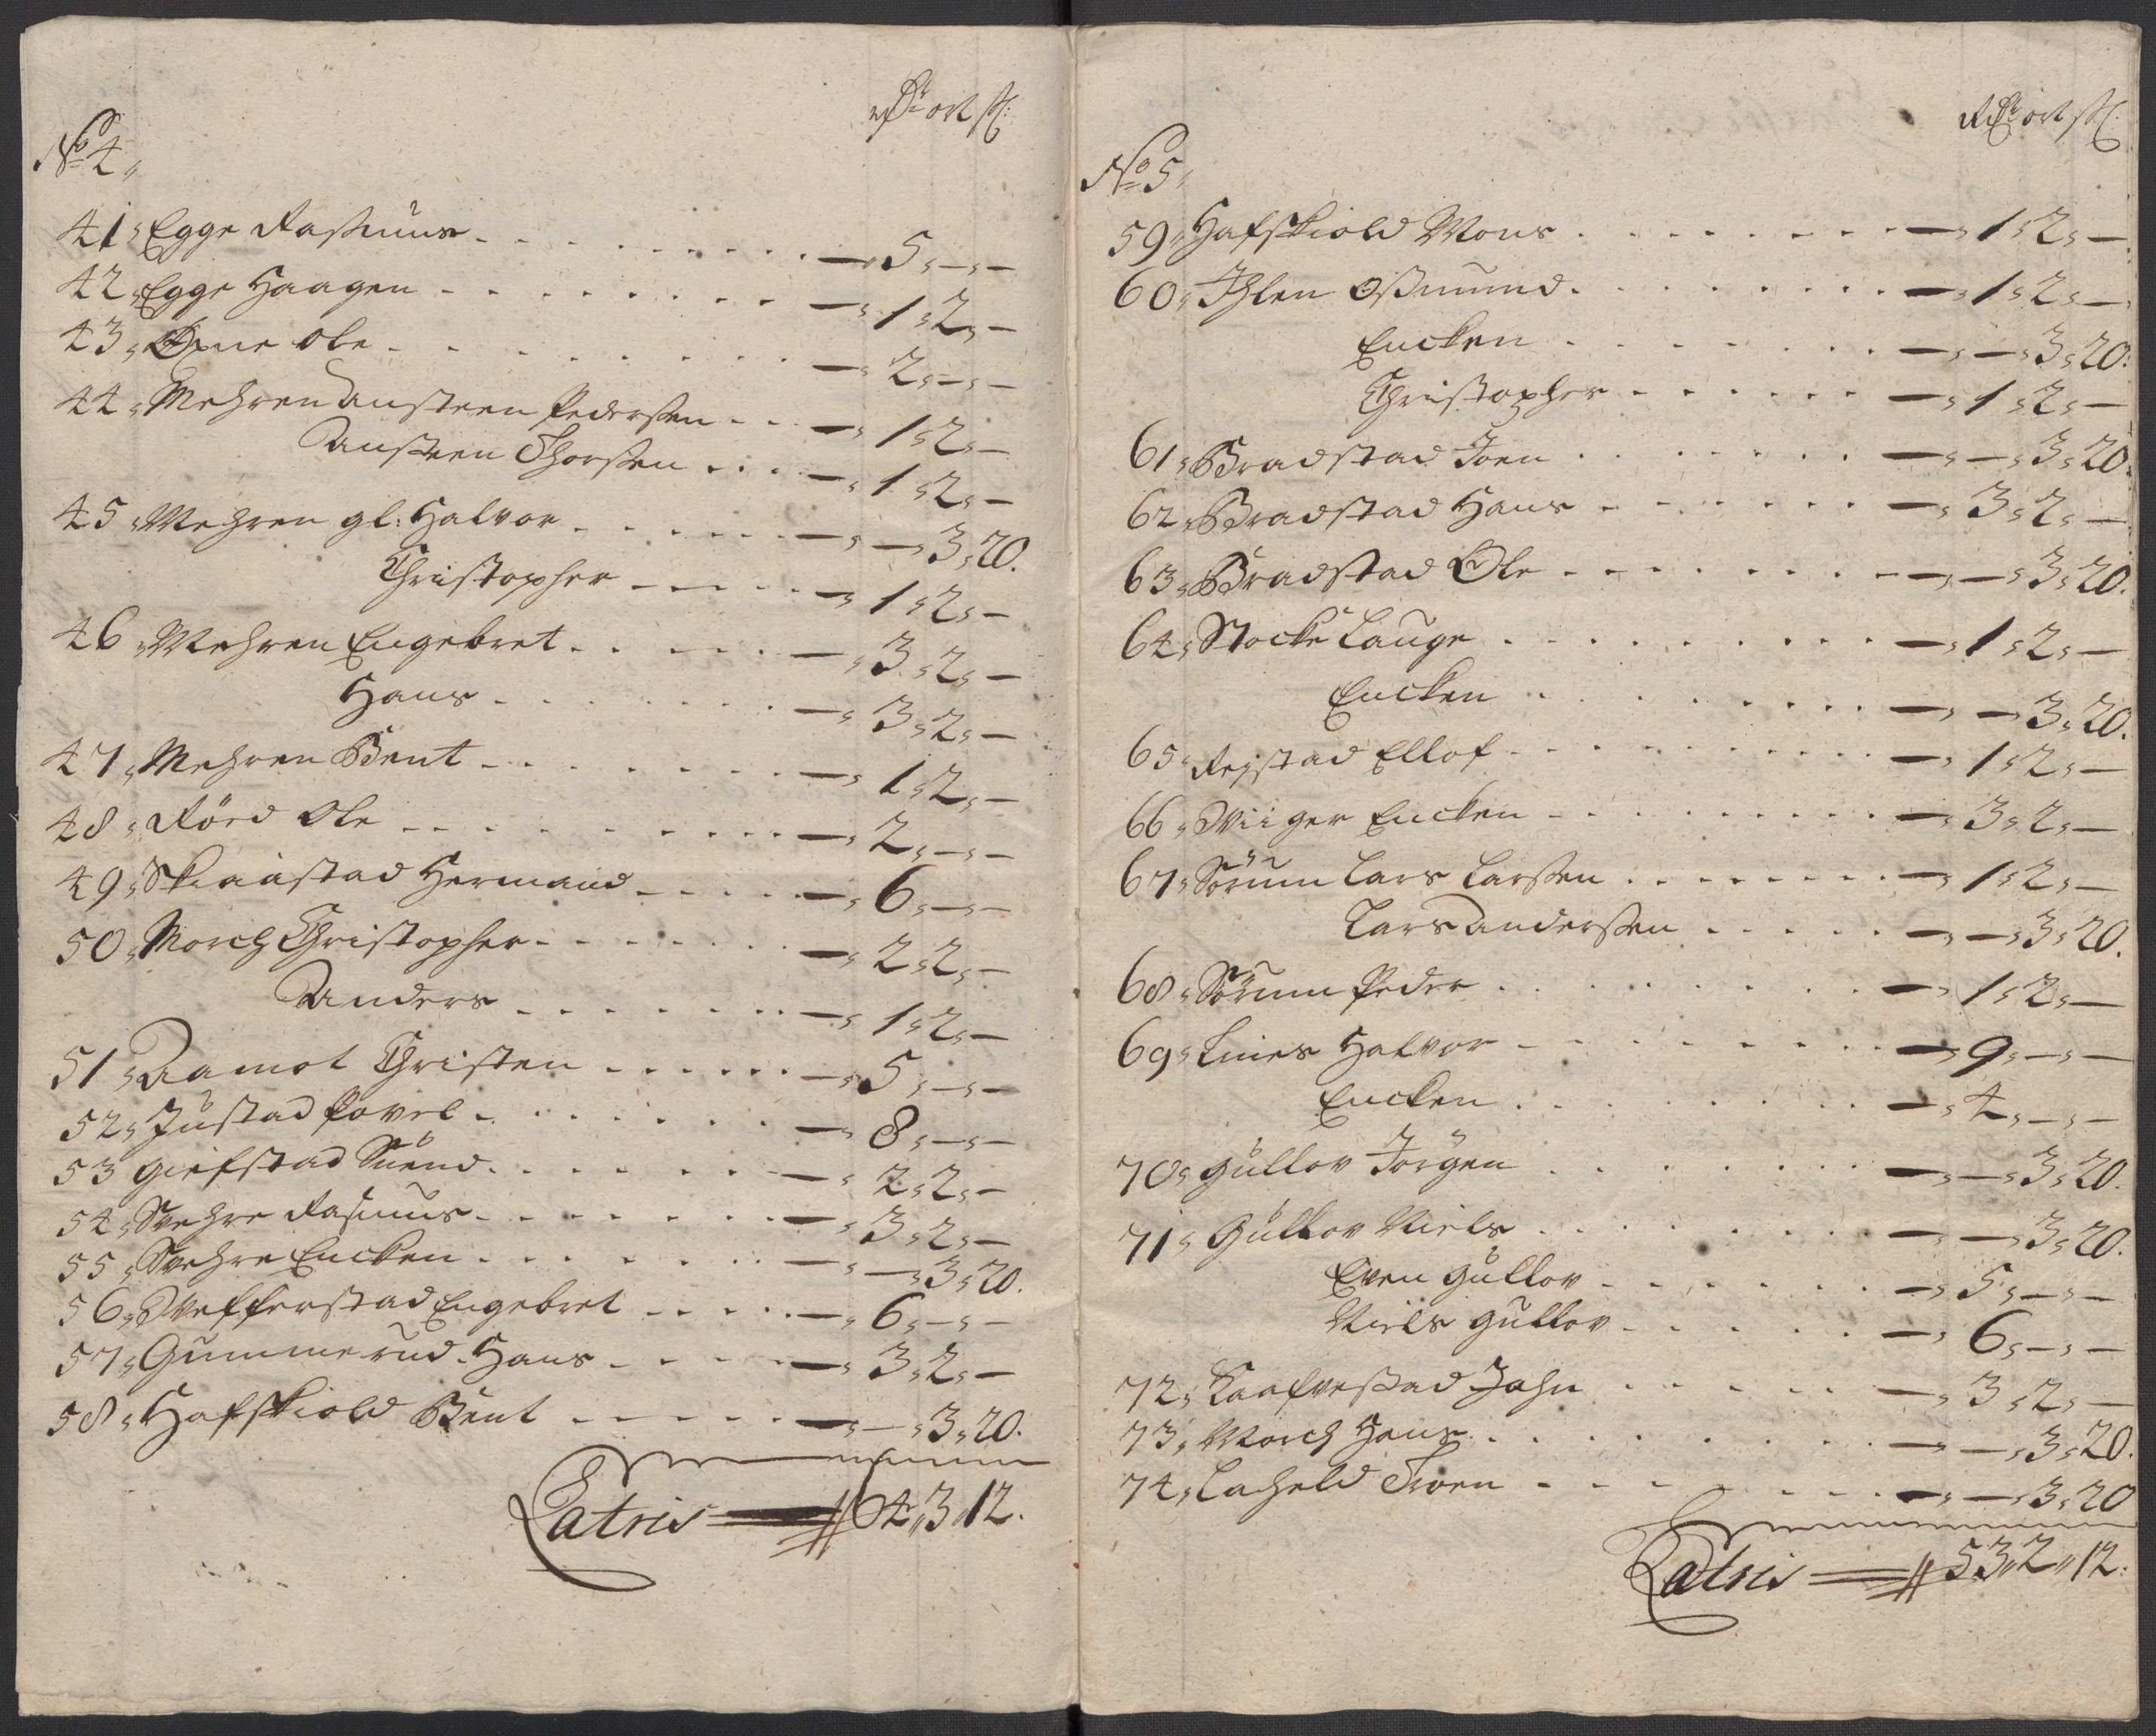 No 4,,
Rdr ort ß:
41, Egge Rasmus - - - - - - - - - — 5,-,-
42, Egge Haagen - - - - - - - - — , 1,2,-
43, Øxne Ole - - - - - - - - - — , 2,-,-
44, Mehren Austeen Pederssen - - — , 1,2,-
Austeen Thorssen - - - — , 1,2,-
45, Mehren gl: Halvor - - - - - — , — 3,20.
Christopher - - - - - — , 1,2,-
46, Mehren Engebret - - - - - — , 3,2,-
Hans - - - - - - - — , 3,2,-
47, Mehren Bent - - - - - - - — , 1,2,-
48, Röed Ole - - - - - - - - - — , 2,-,-
49, Skiaastad Hermand - - - - — , 6,-,-
50, Morch Christopher - - - - - - — , 2,2,-
Anders - - - - - - - — , 1,2,-
51, Aamot Christen - - - - - - — , 5,-,-
52, Justad Povel - - - - - - — , 8,-,-
53 Giefstad Suend - - - - - - — , 2,2,-
54, Svehre Rasmus - - - - - - - — , 3,2,-
55, Svehre Encken - - - - - - — , — , 3,20.
56, Schefferstad Engebret - - - - — , 6,-,-
57, Gummerud Hans - - - - — , 3,2,-
58, Hafskiold Bent - - - - - — , — , 3,20.
Latris — 64,,3,,12.
No 5,,
Rdr ort ß:
59, Hafskiold Mons - - - - - - - — , 1,2,—
60, Ihlen Ossmund - - - - - - - — , 1,2,—
Encken - - - - - - — , — , 3,20:
Christopher - - - - - - — , 1,2,—
61, Bradstad Joen - - - - - - - — , — , 3,20.
62, Bradstad Hans - - - - - - - — , 3,2,—
63, Bradstad Ole - - - - - - - - — , — , 3,20.
64, Stocke Lauge - - - - - - - - — , 1,2,—
Encken - - - - - - - - — , — 3,20.
65, Rejstad Ellof - - - - - - - - — , 1,2,—
66, Wiiger Encken - - - - - - - - — , 3,2,—
67, Sörum Lars Larssen - - - - - - — , 1,2,—
Lars Anderssen - - - - - — , — , 3,20.
68, Sörum Peder - - - - - - - - — , 1,2,—
69, Lines Halvor - - - - - - - - — , 9,—,—
Encken - - - - - - - - — , 4,—,—
70, Gullov Jörgen - - - - - - - — , — , 3,20.
71, Gullov Niels - - - - - - - — , — , 3,20.
Even Gullov - - - - - - — , 5,—,—
Niels Gullov - - - - - - — , 6,—,—
72, Kaafvestad Jahn - - - - - - — , 3,2,—
73, Morch Hans - - - - - - - - — , — , 3,20.
74, Lacheld Troen - - - - - - - - — , — , 3,20
Latris — 53,,2,,12: